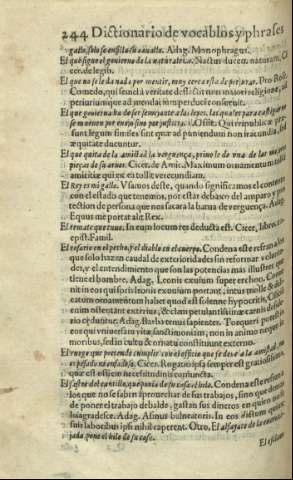 244 Dictionario de vocablos y phrases
gasto, solo se ensilla su cauallo. Adag. Monophragus.
El que sigue el gouierno de la naturaleza. Naturę ducem naturam, Ci
cer. de legib.
El que no se le da nada por mentir, muy cerca esta de perjurar. Pro Rosc.
Comedo, qui semel à veritate deflexit
periurium que ad mendacium perduci consueuit.
El que gouierna ha de ser semejante à las leyes, las quales para castigar no
se mueuen por enojo sino por justicia. Offic. Qui reipublicæ præ-
sunt legum similes sint quæ ad puniendum non iracundia, sed
æquitate ducuntur.
El que quita de la amistad la verguença, priuole de vna de las mayores
pieças de su arnes. Cicer. de Amic. Maximum ornamentum tollit
amicitiæ qui ex ea tollit verecundiam.
El Rey es mi gallo. Vsamos deste, quando significamos el contento
con el estado que tenemos, por estar debaxo del amparo y pro
tection de persona que nos sacara la barua de verguença. Adag.
Equus me portat alit Rex.
El remate que tuuo. In eum locum res deducta est. Cicer, libro
epist. Famil.
El rosario en el pecho, y el diablo en el cuerpo. Condena este refran a los
que solo hazen caudal de exterioridades sin reformar volunta-
des, y el entendimiento que son las potencias mas illustres que
tiene el hombre. Adag. Leonis exuuium super crocoton. Conue
nit in eos qui
catum ornamentum habet quod est solenne hypocritis,
enim ostentant extrius, & clam petulantissimæ
rio objiuntur. Adag. Barba tenus sapientes. Torqueri potest in
eos qui vniuersam vitæ sanctimoniam, non in animo neque in
moribus, sed in cultu & ornatu constituunt externo.
El ruego que pretende cumplir con el officio que se deue a la amistad, no
es pesado ni enfadoso. Cicer. Rogatio ipsa semper est gratissima,
quæ est officio necessitudinis coniuncta.
El sastre del cantillo, que ponia de su casa el hilo. Condena este refran a
los que no se saben aprouechar de sus trabajos, sino que demas
de poner el trabajo debalde, gastan sus dineros en quien no se lo
agradesce. Adag. Asinus balneatoris. In eos dictum qui ex
suis laboribus ipsi nihil caperent. Otro. El alfayate de la encruzi-
jada pone el hilo de su casa.